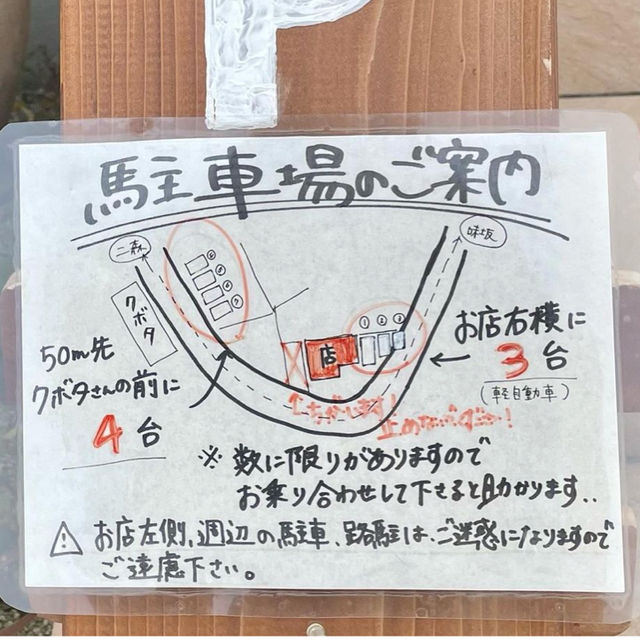 P
駐車場のご案内
二森
味坂
クボタ
④
⑤
⑥
⑦
① ② ③
店
お店右横に
3台
(軽自動車)
50m先
クボタさんの前に
4台
止めないで下さい!
※ 数に限りがありますので
お乗り合わせして下さると助かります..
お店左側、週辺の駐車、路駐は、ご迷惑になりますので
ご遠慮下さい。